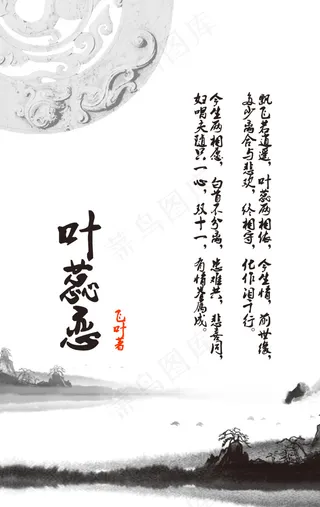 飘飞若逍遥，叶蕊两相依，今生情，前世缘，
多少离合与悲欢，终相守，化作泪千行。
今生两相恋，白首不分离，患难共，悲喜同，
妇唱夫随只一心，双十一，有情眷属成。
叶蕊恋
飞叶著